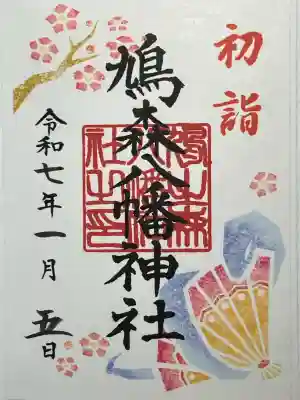 初詣
鳩森八幡神社
令和七年一月五日